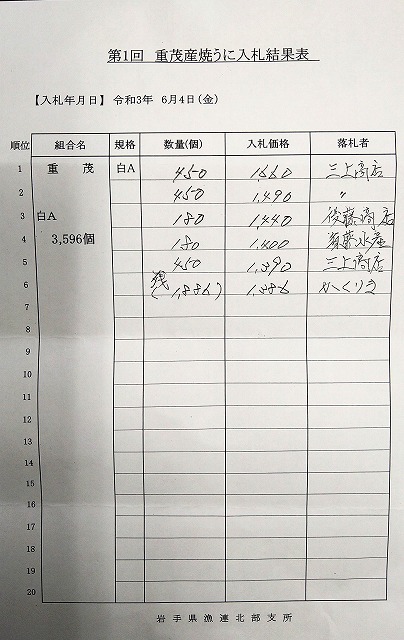 第1回 重茂産焼うに入札結果表
【入札年月日】 令和3年 6月4日(金)
順位 組合名 規格 数量(個) 入札価格 落札者
1 重茂 白A 450 1,560 三上商店
2 450 1,490 〃
3 白A 180 1,440 後藤商店
4 3,596個 180 1,400 水産
5 450 1,390 三上商店
6 残(1,886) 1,386 かくりき
7
8
9
10
11
12
13
14
15
16
17
18
19
20
岩手県漁連北部支所